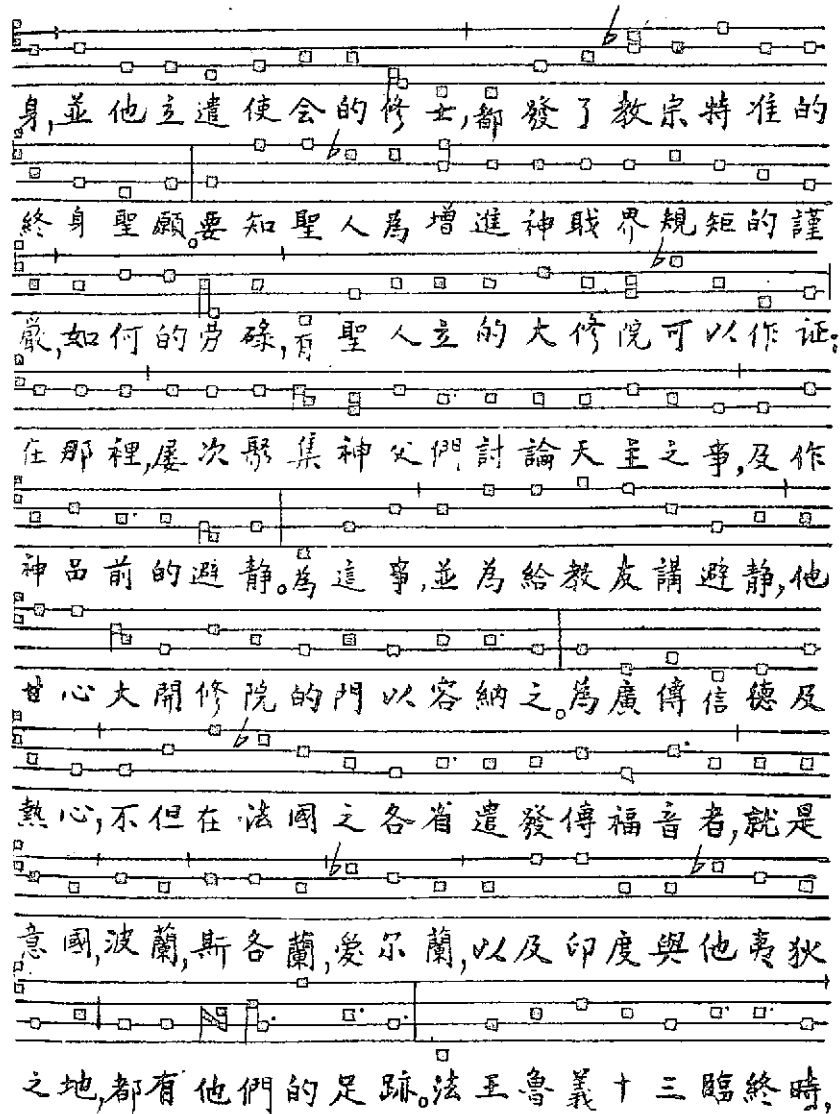 身,並他立遣使会的修士,都發了教宗特准的
終身聖願。要知聖人為增進神職界規矩的謹
嚴,如何的劳碌,有聖人立的大修院可以作证;
在那裡,屡次聚集神父們討論天主之事,及作
神品前的避静。為這事,並為給教友講避静,他
甘心大開修院的門以容納之。為廣傳信德及
熱心,不但在法國之各省遣發傳福音者,就是
意國,波蘭,斯各蘭,愛尔蘭,以及印度與他夷狄
之地,都有他們的足跡。法王魯義十三臨終時,